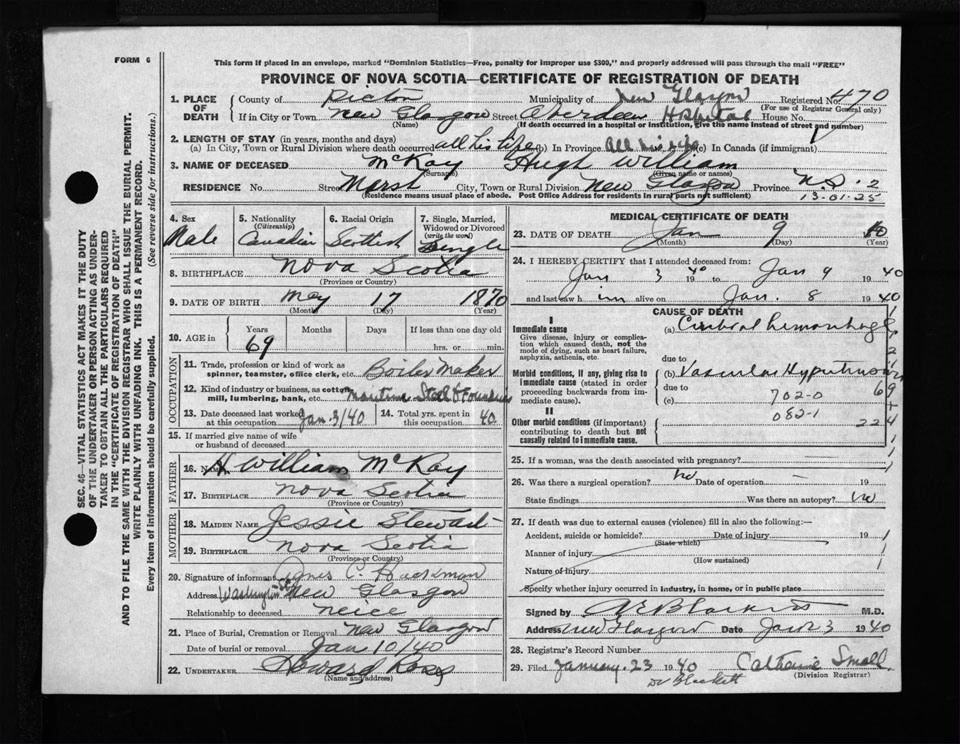 FORM 6
This form if placed in an envelope, marked "Dominion Statistics—Free, penalty for improper use $300," and properly addressed will pass through the mail "FREE"
PROVINCE OF NOVA SCOTIA—CERTIFICATE OF REGISTRATION OF DEATH
SEC. 46—VITAL STATISTICS ACT MAKES IT THE DUTY
OF THE UNDERTAKER OR PERSON ACTING AS UNDER-
TAKER TO OBTAIN ALL THE PARTICULARS REQUIRED
IN THE "CERTIFICATE OF REGISTRATION OF DEATH"
AND TO FILE THE SAME WITH THE DIVISION REGISTRAR WHO SHALL ISSUE THE BURIAL PERMIT.
WRITE PLAINLY WITH UNFADING INK. THIS IS A PERMANENT RECORD.
Every item of information should be carefully supplied. (See reverse side for instructions.)
1. PLACE OF DEATH County of Pictou Municipality of New Glasgow Registered No. 470
(For use of Registrar General only)
If in City or Town New Glasgow Street Aberdeen Hospital House No.
(Name) (If death occurred in a hospital or institution, give the name instead of street and number)
2. LENGTH OF STAY (in years, months and days)
(a) In City, Town or Rural Division where death occurred all his life (b) In Province All his life (c) In Canada (if immigrant)
3. NAME OF DECEASED McKay Hugh William
(Surname) (Given name or names)
RESIDENCE No. Street Marsh City, Town or Rural Division New Glasgow Province N.S. 2
(Residence means usual place of abode. Post Office Address for residents in rural parts not sufficient) 13-01-25
4. Sex Male
5. Nationality (Citizenship) Canadian
6. Racial Origin Scottish
7. Single, Married, Widowed or Divorced (write the word) Single
8. BIRTHPLACE Nova Scotia
(Province or Country)
9. DATE OF BIRTH May 17 1870
(Month) (Day) (Year)
10. AGE in Years Months Days If less than one day old
69 hrs. or min.
OCCUPATION
11. Trade, profession or kind of work as spinner, teamster, office clerk, etc. Boiler Maker
12. Kind of industry or business, as cotton mill, lumbering, bank, etc. Maritime Steel & Foundries
13. Date deceased last worked at this occupation Jan. 3/40
14. Total yrs. spent in this occupation 40
15. If married give name of wife or husband of deceased
FATHER
16. Name H William McKay
17. BIRTHPLACE Nova Scotia
(Province or Country)
MOTHER
18. MAIDEN NAME Jessie Stewart
19. BIRTHPLACE Nova Scotia
(Province or Country)
20. Signature of informant C.
Address Washington St New Glasgow
Relationship to deceased neice
21. Place of Burial, Cremation or Removal New Glasgow
Date of burial or removal Jan 10/40
22. UNDERTAKER Howard Ross
(Name and address)
MEDICAL CERTIFICATE OF DEATH
23. DATE OF DEATH Jan 9 40
(Month) (Day) (Year)
24. I HEREBY CERTIFY that I attended deceased from:
Jan 3 1940 to Jan 9 1940
and last saw him alive on Jan. 8 1940
CAUSE OF DEATH
I
Immediate cause (a) Cerebral hemorrhage
Give disease, injury or complication which caused death, not the mode of dying, such as heart failure, asphyxia, asthenia, etc.
due to
Morbid conditions, if any, giving rise to immediate cause (stated in order proceeding backwards from immediate cause). (b) Vascular Hypertension
due to 702-0 69
(c) 082-1 224
II
Other morbid conditions (if important) contributing to death but not causally related to immediate cause.
25. If a woman, was the death associated with pregnancy?
26. Was there a surgical operation? No Date of operation
State findings Was there an autopsy? No
27. If death was due to external causes (violence) fill in also the following:—
Accident, suicide or homicide? Date of injury 19
(State which)
Manner of injury
(How sustained)
Nature of injury
Specify whether injury occurred in industry, in home, or in public place
Signed by M.D.
Address New Glasgow Date Jan 23 1940
28. Registrar's Record Number
29. Filed January 23 1940 Catherine Small
(Division Registrar)
Dr Blackett